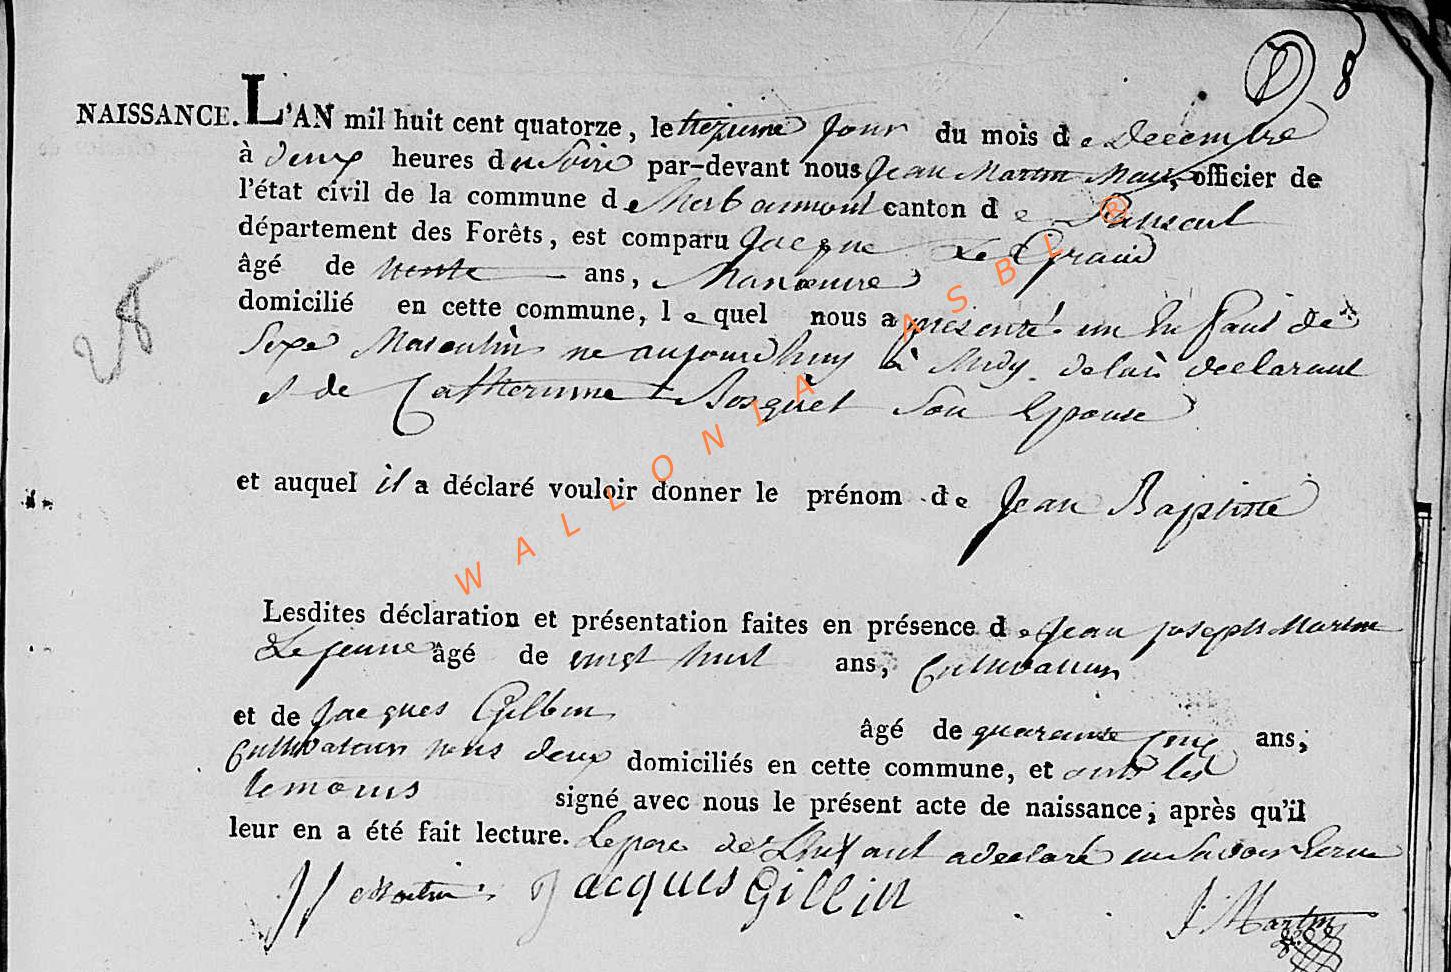 8 8
NAISSANCE. L'AN mil huit cent quatorze, le treizieme Jour du mois de Decembre
à deux heures du Soire par-devant nous Jean Martin Maire, officier de
l'état civil de la commune de Herbeumont canton de
département des Forêts, est comparu Jacque Le Grand
âgé de trente ans, Manœuvre
domicilié en cette commune, lequel nous a présenté un Enfant de
Sexe Masculin ne aujourdhuy à Midy de lui declarant
et de Catherinne Bosquet Son Epouse
28
et auquel il a déclaré vouloir donner le prénom de Jean Baptiste
Lesdites déclaration et présentation faites en présence de Jean joseph Martin
Le jeune âgé de vingt huit ans, Cultivateur
et de Jacques Gilbin âgé de quarante Cinq ans,
Cultivateur tous deux domiciliés en cette commune, et ont les
temoins signé avec nous le présent acte de naissance, après qu'il
leur en a été fait lecture. Le pere de L'enfant a declaré ne Savoir Ecrire
JJ Martin Jacques Gillin J. Martin
WALLONIA ASBL ®